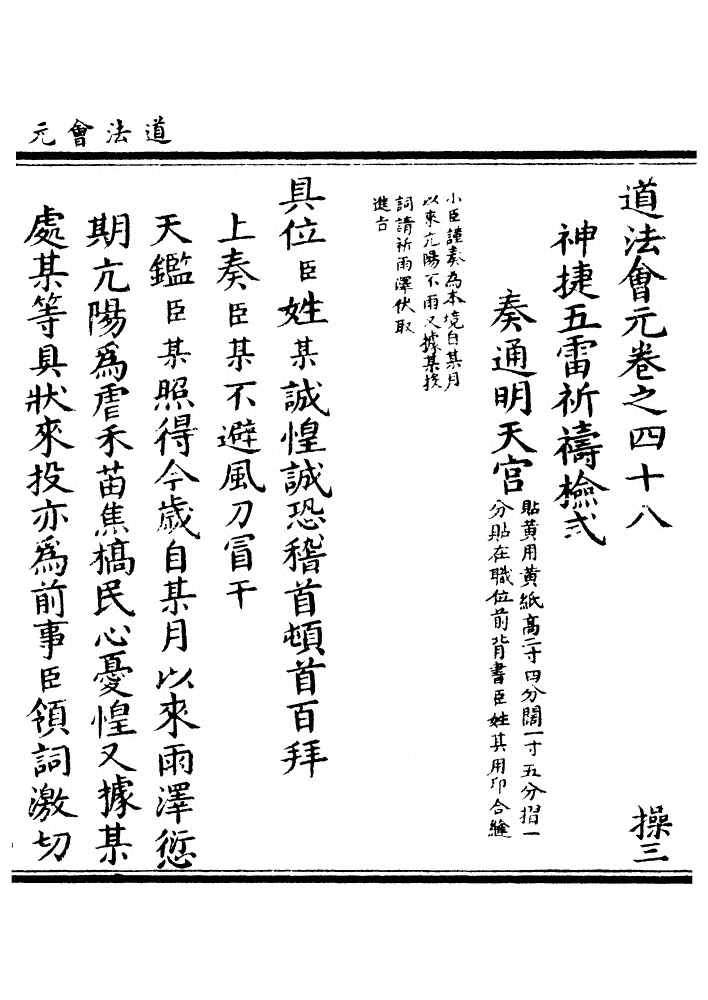 道法會元
道法會元卷之四十八
操三
神捷五雷祈禱檢式
奏通明天宮
貼黃用黃紙高二寸四分闊一寸五分摺一
分貼在職位前背書臣姓某用印合縫
小臣謹奏為本境自某月
以來亢陽不雨又據某投
詞請祈雨澤伏取
進旨
具位臣姓某誠惶誠恐稽首頓首百拜
上奏臣某不避風刀冒干
天鑑臣某照得今歲自某月以來雨澤愆
期亢陽為虐禾苗焦槁民心憂惶又據某
處某等具狀來投亦為前事臣領詞激切